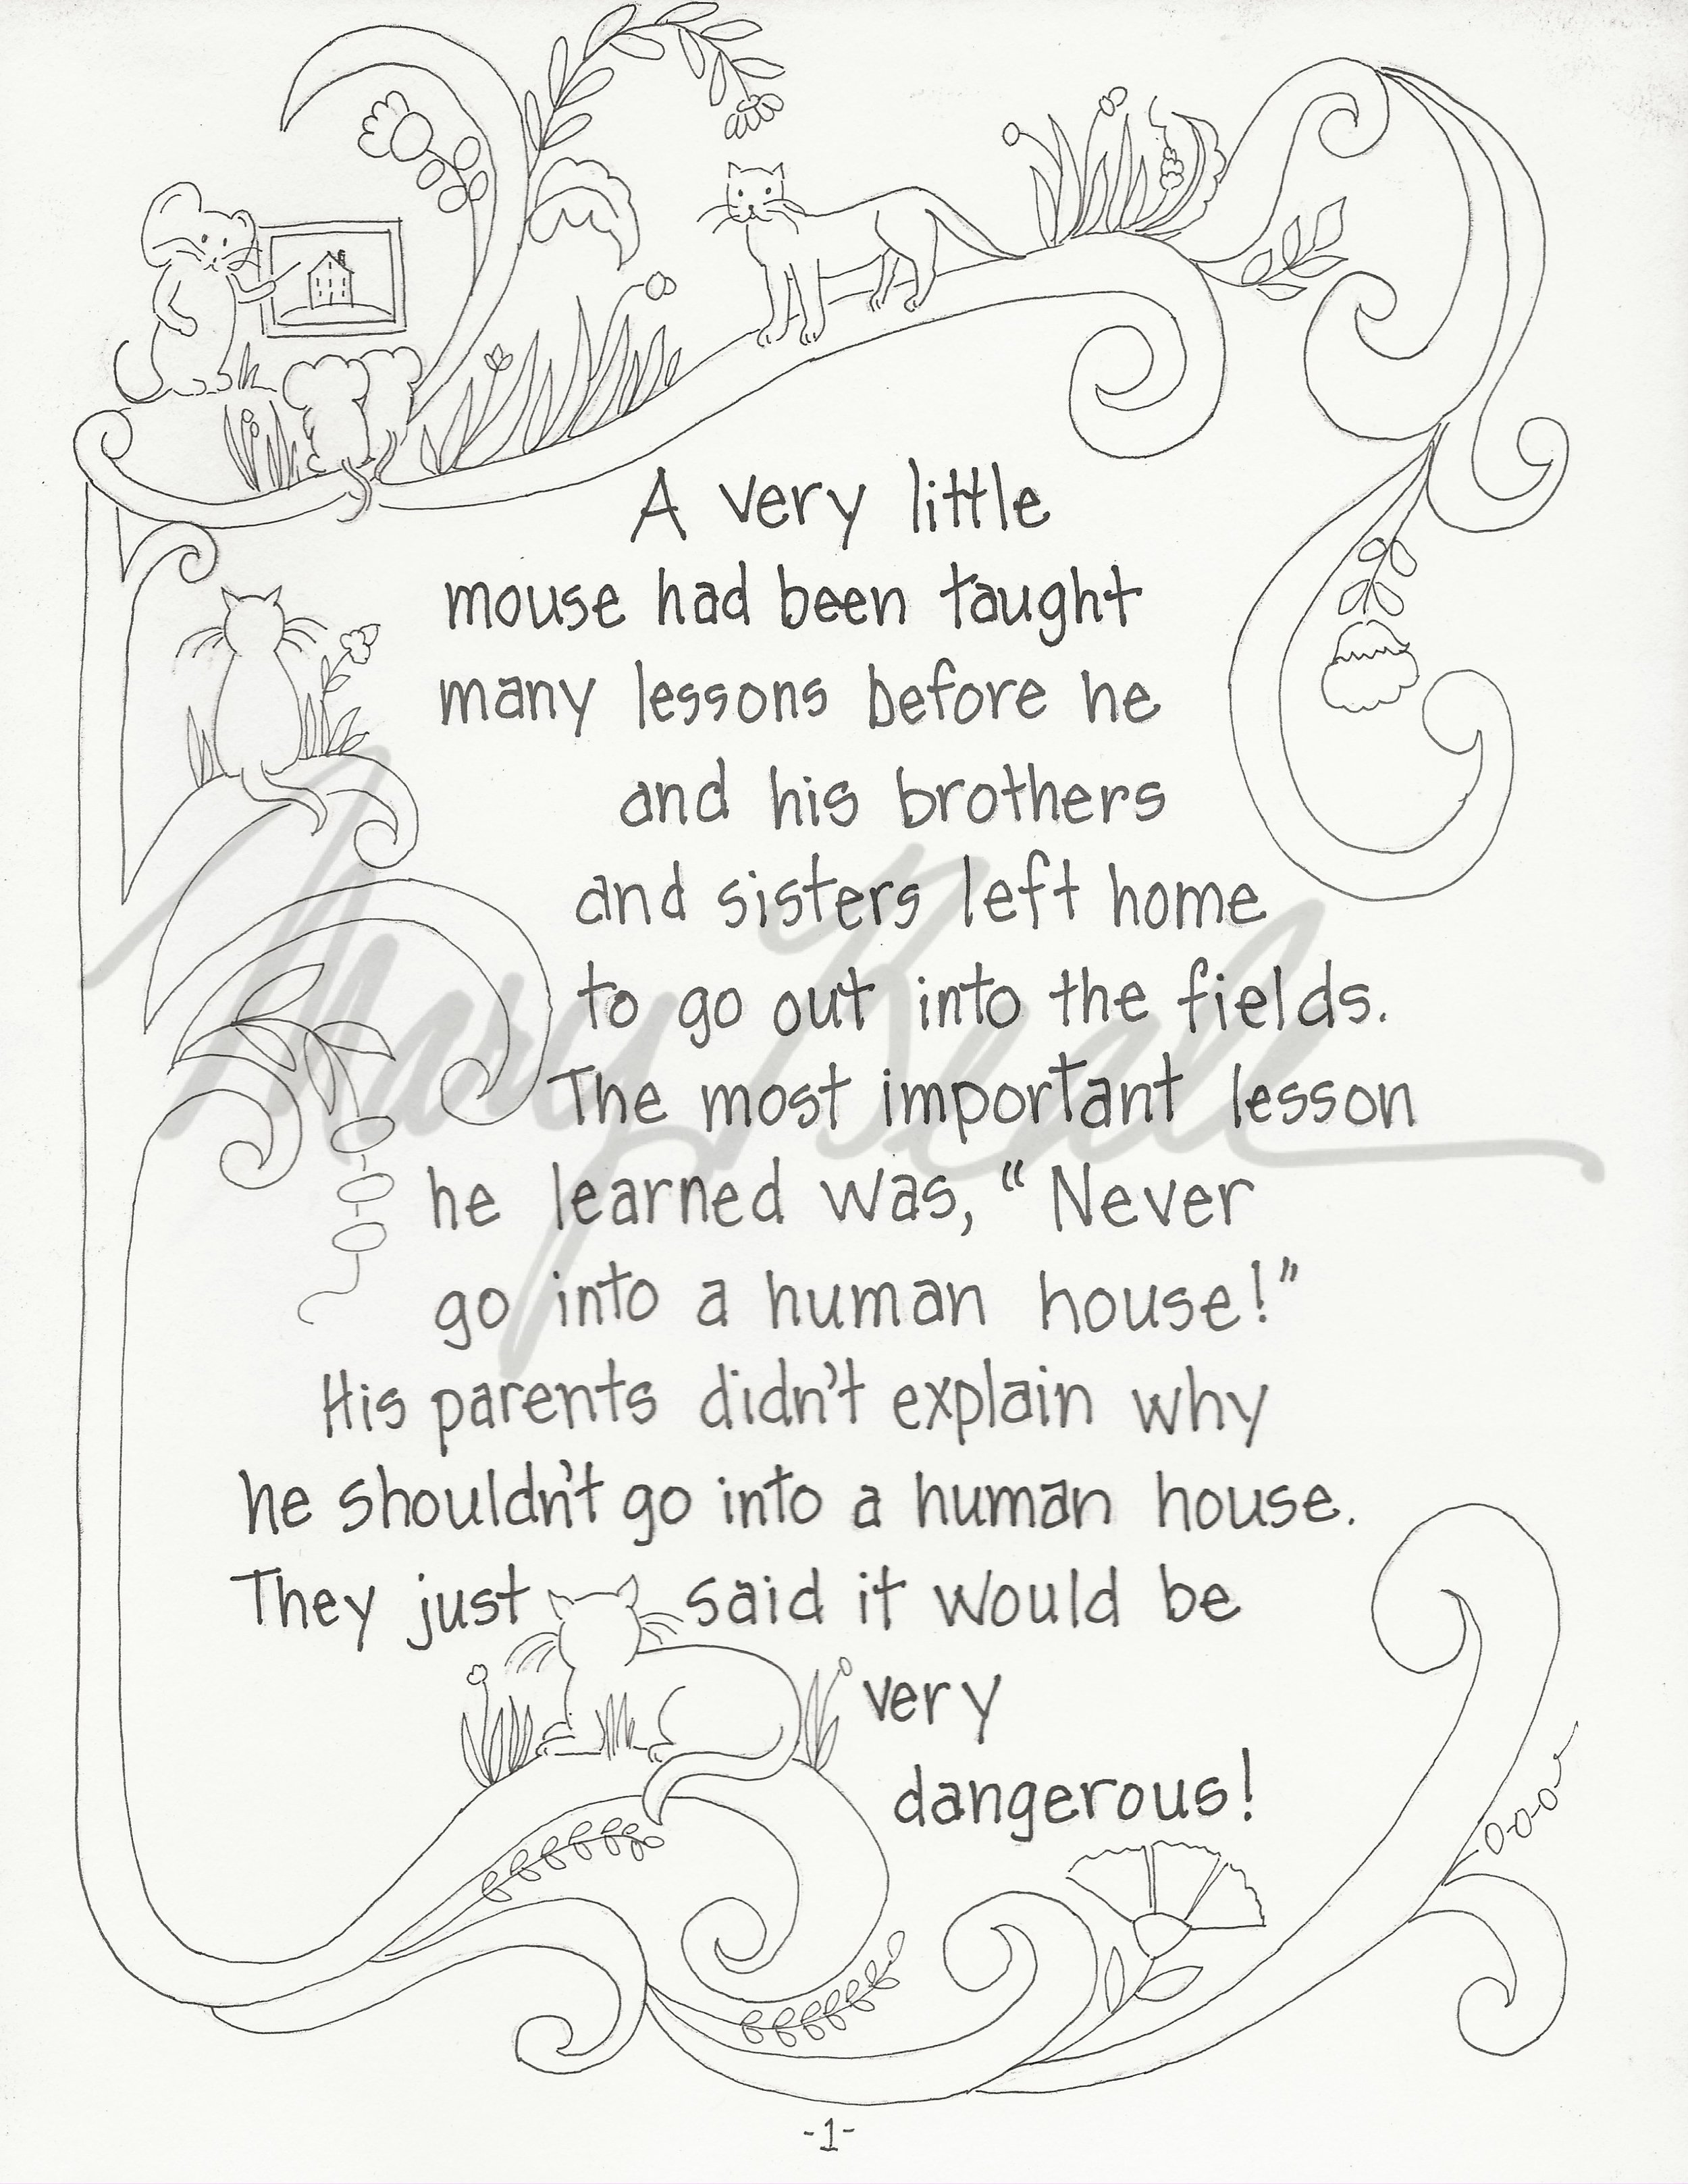 A very little
mouse had been taught
many lessons before he
and his brothers
and sisters left home
to go out into the fields.
The most important lesson
he learned was, “Never
go into a human house!”
His parents didn't explain why
he shouldn't go into a human house.
They just said it would be
very
dangerous!
-1-